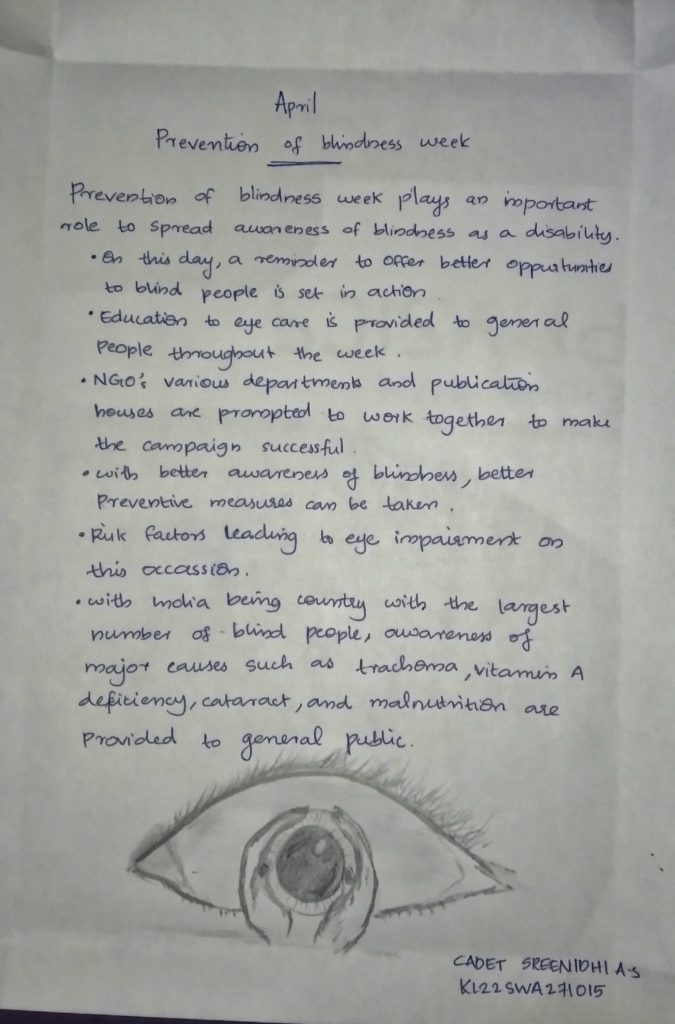 April
Prevention of blindness week
Prevention of blindness week plays an important
role to spread awareness of blindness as a disability.
• On this day, a reminder to offer better oppurtunities
to blind people is set in action.
• Education to eye care is provided to general
people throughout the week.
• NGO's various departments and publication
houses are prompted to work together to make
the campaign successful.
• with better awareness of blindness, better
Preventive measures can be taken.
• Risk factors leading to eye impairment on
this occassion.
• with India being country with the largest
number of blind people, awareness of
major causes such as trachoma, vitamin A
deficiency, cataract, and malnutrition are
provided to general public.
CADET SREENIDHI A.S
KL22SWA271015